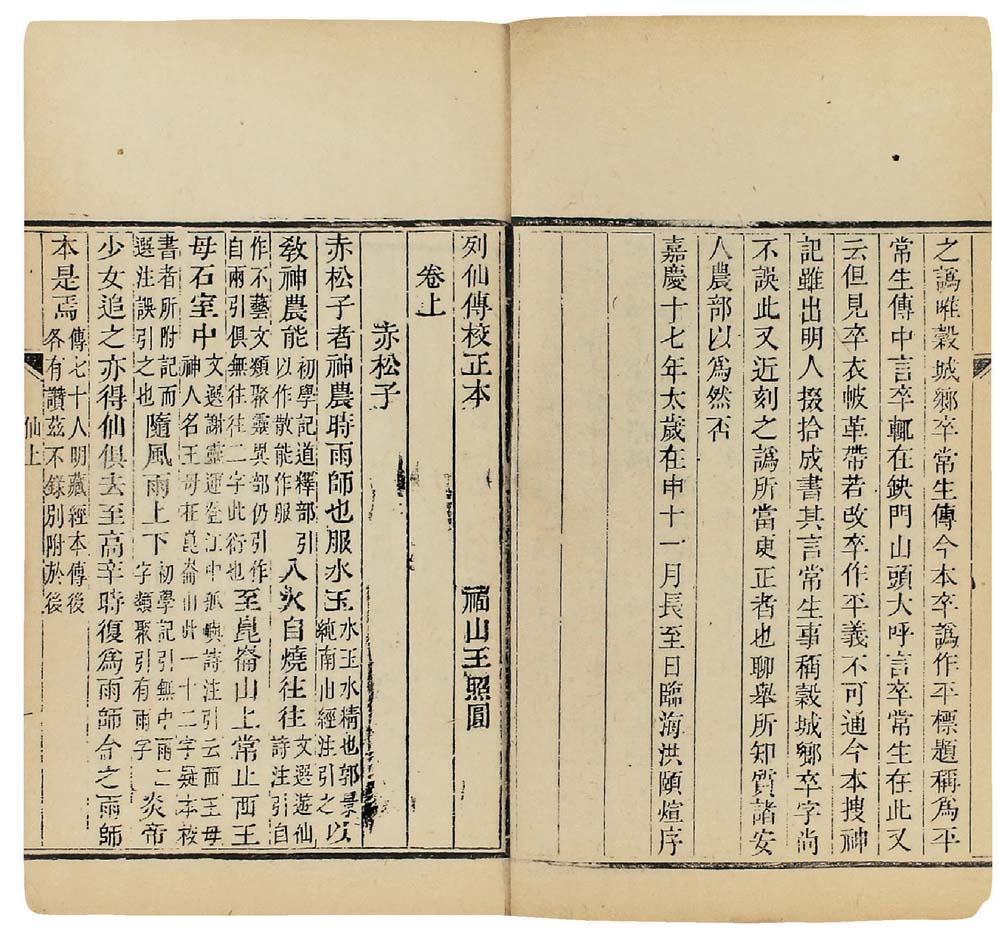 之譌唯榖城鄉卒常生傳今本卒譌作平標題稱爲平
常生傳中言卒輒在缺門山頭大呼言卒常生在此又
云但見卒衣帔革帶若改卒作平義不可通今本搜神
記雖出明人掇拾成書其言常生事稱榖城鄉卒字尚
不誤此又近刻之譌所當更正者也聊舉所知質諸安
人農部以爲然否
嘉慶十七年太歲在申十一月長至日臨海洪頤煊序
列仙傳校正本 福山王照圓
卷上
赤松子
赤松子者神農時雨師也服水玉水玉水精也郭景純南山經注引之以
教神農能初學記道釋部引以作散能作服入火自燒往往文選遊仙詩注引自
作不藝文類聚靈異部仍引作自兩引俱無往往二字此衍也至崑崙山上常止西王
母石室中文選謝靈運登江中孤嶼詩注引云西王母神人名王母在崑崙山此一十二字疑本校
書者所附記而選注誤引之也隨風雨上下初學記引無中雨二字類聚引有雨字炎帝
少女追之亦得仙俱去至高辛時復爲雨師今之雨師
本是焉傳七十人明藏經本傳後各有讚茲不錄別附於後
仙上 一